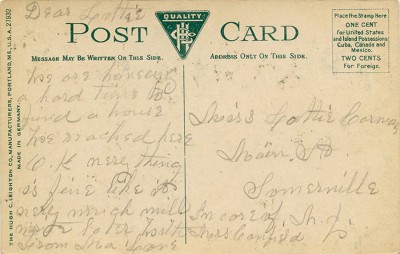 Dear Lottie
QUALITY
POST CARD
MESSAGE MAY BE WRITTEN ON THIS SIDE.
ADDRESS ONLY ON THIS SIDE.
Place the Stamp Here
ONE CENT
for United States
and Island Possessions
Cuba, Canada and
Mexico.
TWO CENTS
For Foreign.
THE HUGH C. LEIGHTON CO., MANUFACTURERS, PORTLAND, ME., U.S.A.
MADE IN GERMANY.
We are having
a hard time to
find a house
We reached here
O.K. every thing
is fine like it
very much will
later
From
Miss Lottie
Main St
Somerville
In care of N. J.
Mrs Canfield